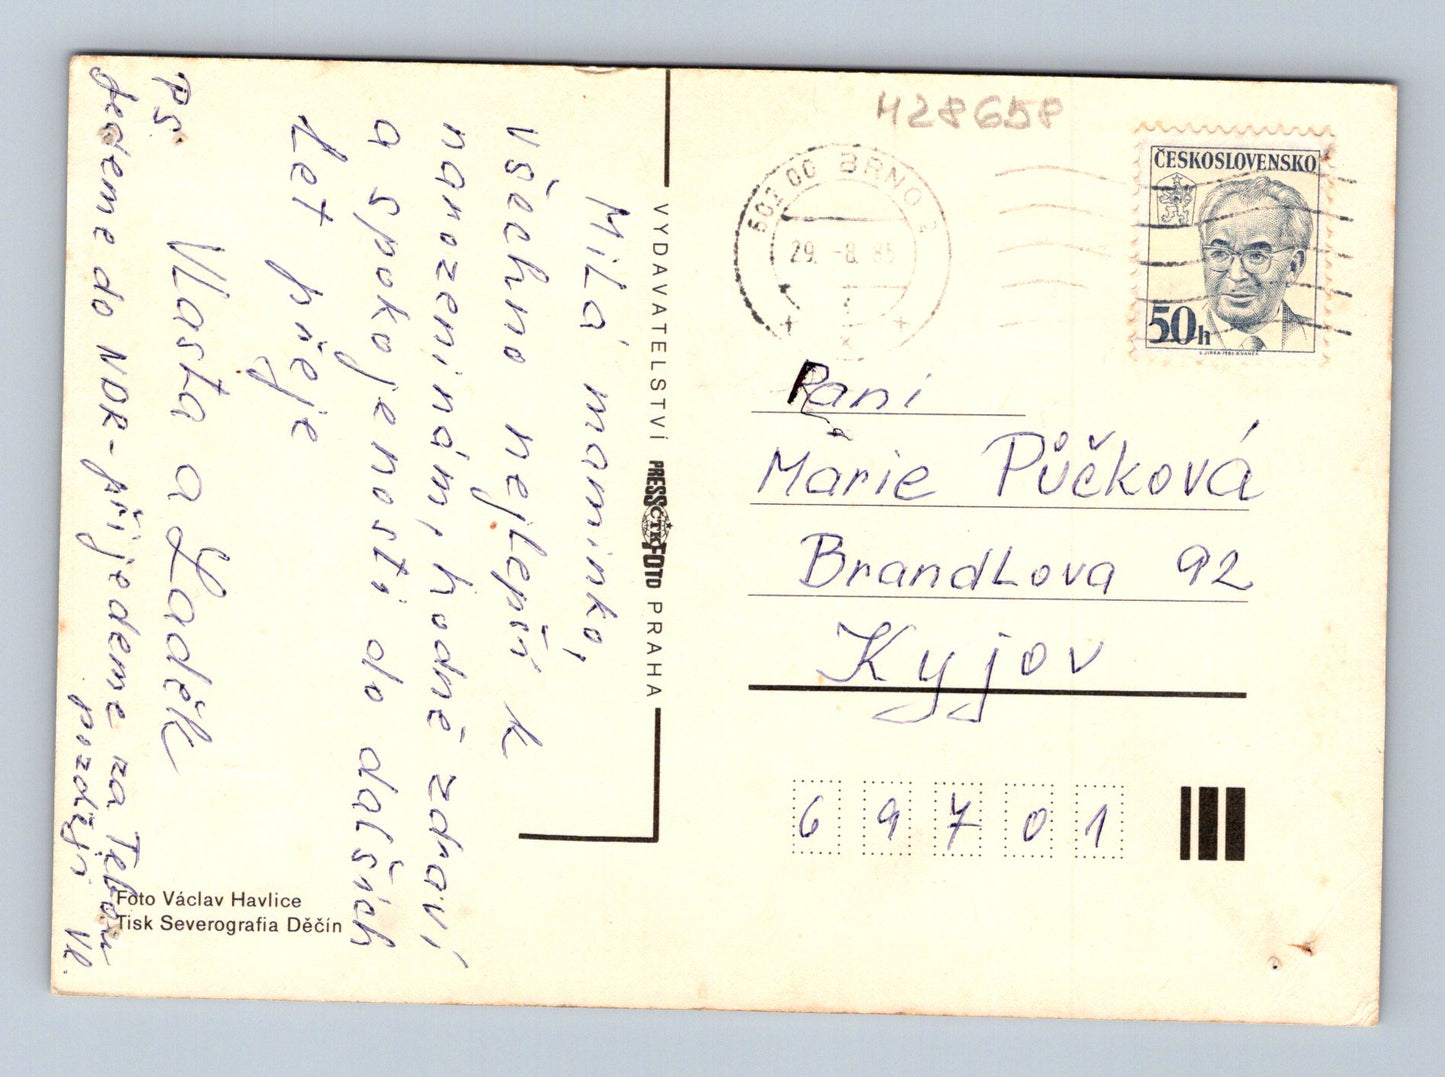 Milá maminko,
všechno nejlepší k
narozeninám, hodně zdraví
a spokojenosti do dalších
let přeje
Vlasta a Laděk
PS.
Jedeme do NDR - přijedeme za Tebou
později Vl.
VYDAVATELSTVÍ PRESSFOTO PRAHA
ČTK
Foto Václav Havlice
Tisk Severografia Děčín
428658
602 00 BRNO 2
29. -8. 85
ČESKOSLOVENSKO
50h
Paní
Marie Půčková
Brandlova 92
Kyjov
69701